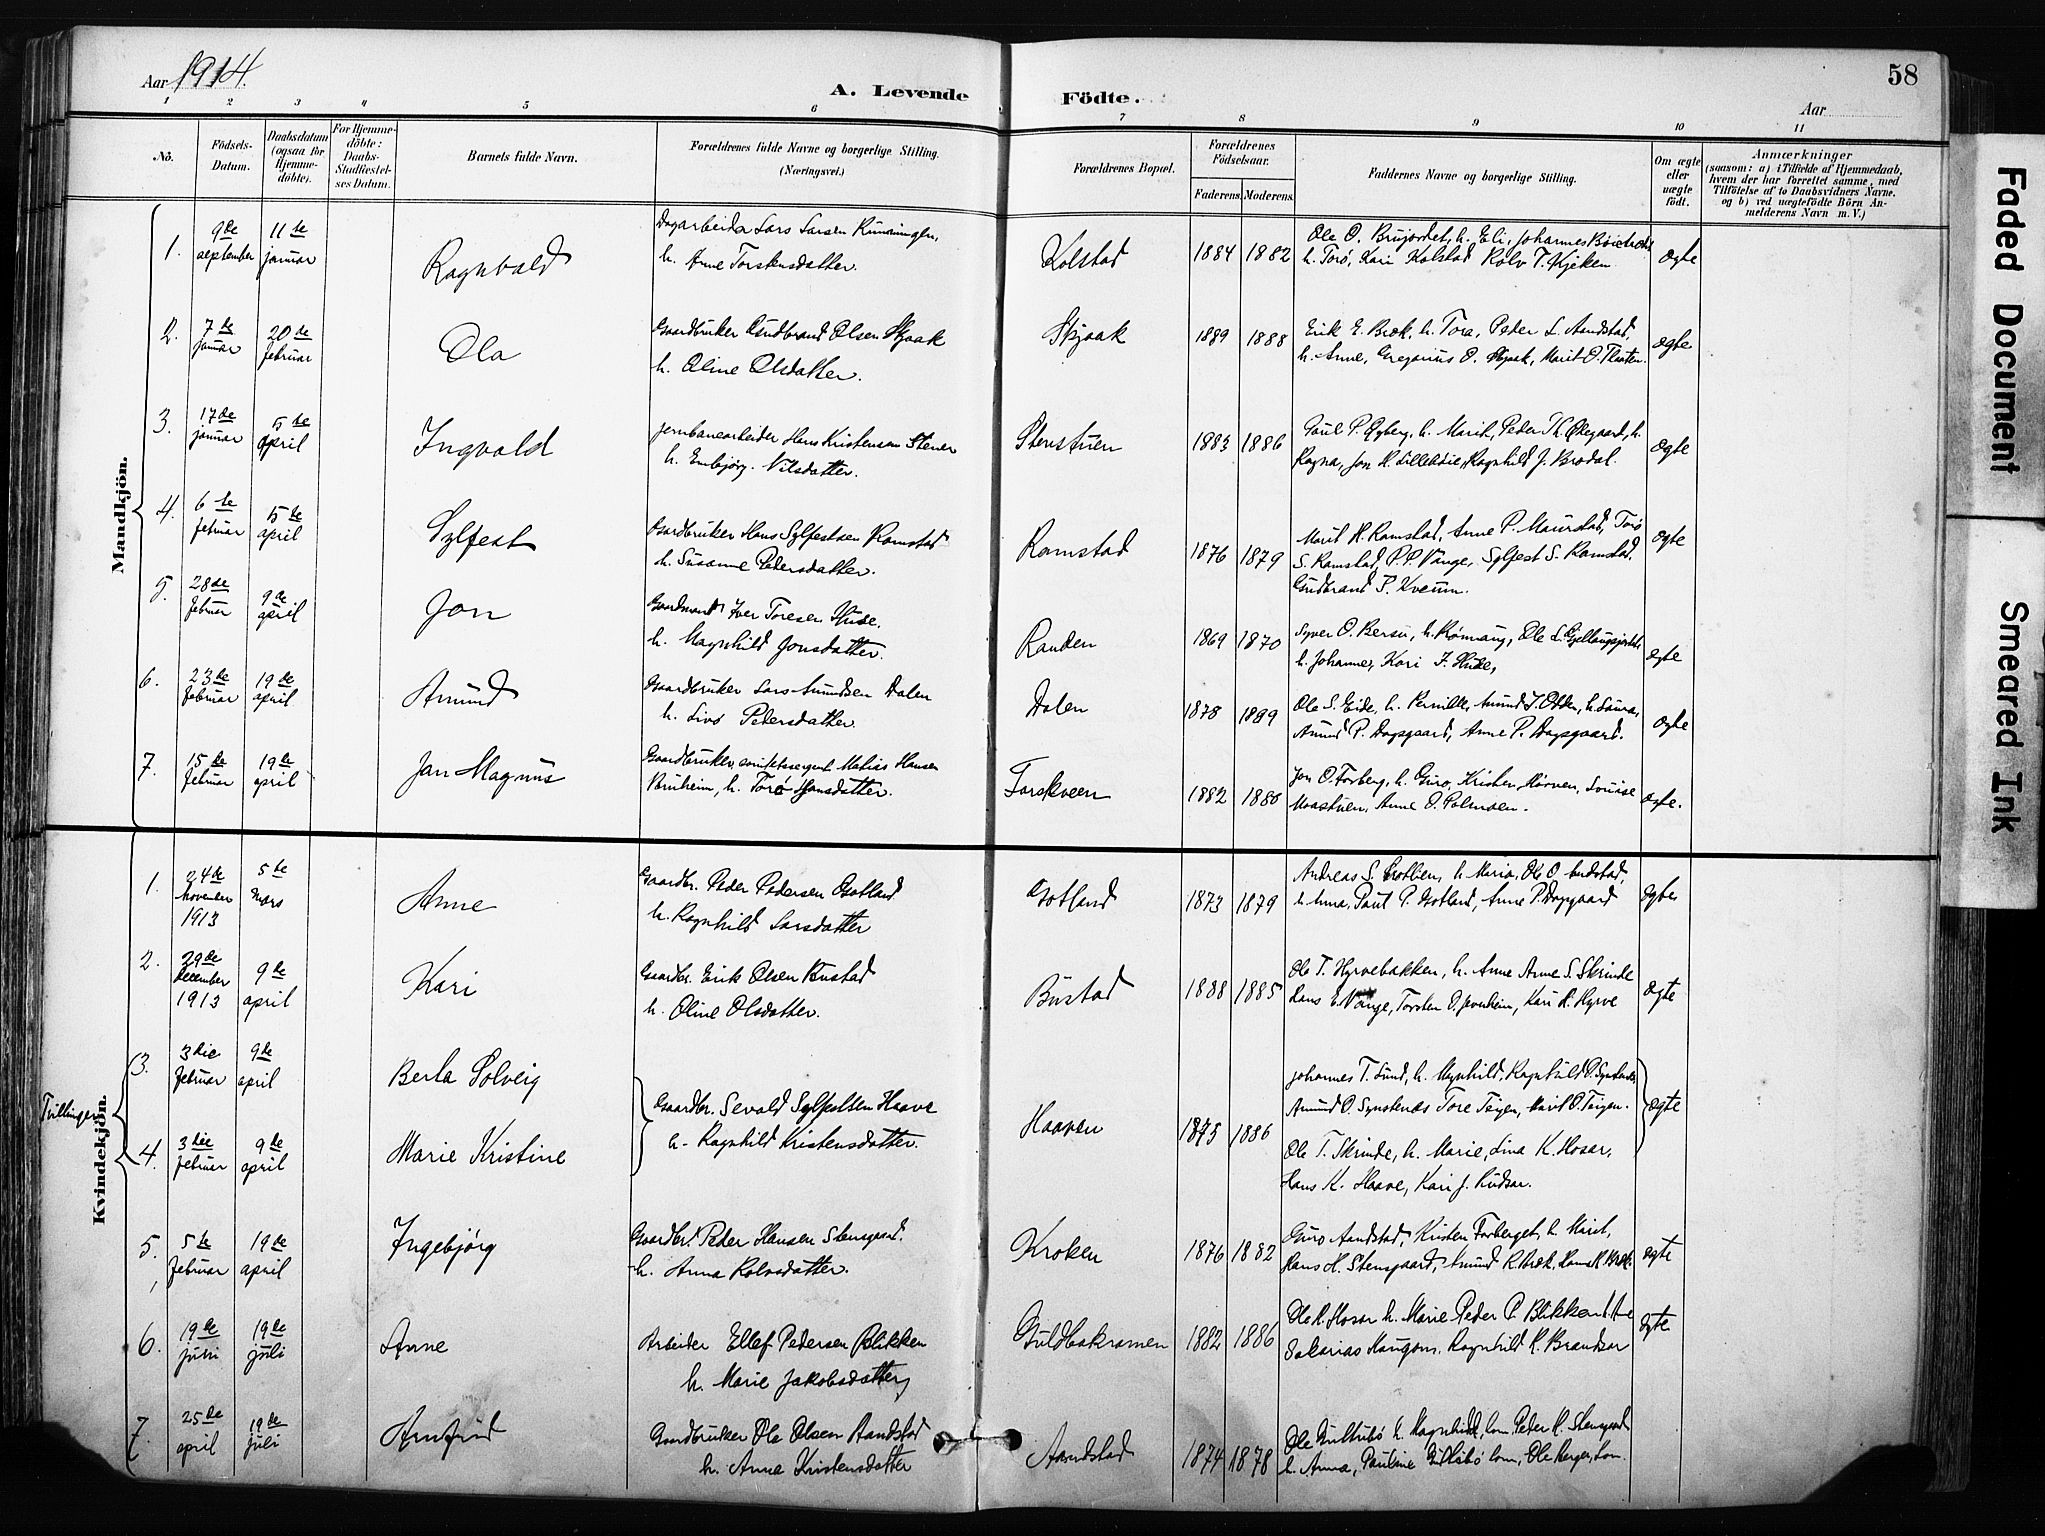 Aar 1914.
A. Levende Födte.
58
Aar
1 2 3 4 5 6 7 8 9 10 11
No.
Födsels-Datum.
Daabsdatum (ogsaa for Hjemme-döbte).
For Hjemme-döbte: Daabs-Stadfæstel-ses Datum.
Barnets fulde Navn.
Forældrenes fulde Navne og borgerlige Stilling. (Næringsvei.)
Forældrenes Bopæl.
Forældrenes Födselsaar.
Faderens. Moderens.
Faddernes Navne og borgerlige Stilling.
Om ægte eller uægte födt.
Anmærkninger
(saasom: a) i Tilfælde af Hjemmedaab,
hvem der har forrettet samme, med
Tilföielse af to Daabsvidners Navne.
og b) ved uægtefödte Börn An-
melderens Navn m. V.)
Mandkjön.
1. 9de september 11te januar Ragnvald
Dagarbeider Lars Larsen
h. Anne Torstensdatter.
Kolstad 1884 1882
Ole O. Brujordet, h. Eli, Johannes
h. Torø, Kari Kolstad Rolv T. Kjeken.
ægte
2. 7de januar 20de februar Ola
Gaardbruker Gudbrand Olsen Skjaak
h. Oline Olsdatter.
Skjaak 1889 1888
Erik E. Bræk, h. Tora, Peder L. Aandstad,
h. Anne, Gregarius O. Skjaak, Marit O. Flaaten.
ægte
3. 17de januar 5te april Ingvald
Jernbanearbeider Hans Kristensen Stenen
h. Embjørg Nilsdatter.
Stenstuen 1883 1886
Paul P. Nyberg, h. Marit, Peder Th. Økegaard, h.
Ragna, Jon H. Lillebøie, Ragnhild J. Brodal.
ægte
4. 6te februar 15de april Sylfest
Gaardbruker Hans Sylfestsen Ramstad
h. Susanne Pedersdatter.
Ramstad 1876 1879
Marit H. Ramstad, Anne P. Maurstad, Torø
S. Ramstad, P. P. Vange, Sylfest S. Ramstad.
Gudbrand P. Kveum.
ægte
5. 28de februar 9de april Jon
Gaardmand Iver Toresen Hude.
h. Magnhild Jonsdatter.
Randen 1869 1870
Syver O. Bersu, h. Rønnaug, Ole L.
h. Johanne, Kari I. Hude,
ægte
6. 23de februar 19de april Amund
Gaardbruker Lars Amundsen Dalen
h. Livø Pedersdatter.
Dalen 1878 1889
Ole S. Eide, h. Pernille, Amund J. Odden, h. Laura,
Amund P. Dagsgaard, Anne P. Dagsgaard.
ægte
7. 15de februar 19de april Jan Magnus
Gaardbruker, Matias Hansen
Bruheim, h. Torø Hansdatter.
Forskveen 1882 1880
Jon O. Forberg, h. Guro, Kristen Mørven, Louise
Moastuen, Anne O. Polmoen.
ægte.
Kvindekjön.
1. 24de November 1913 5te mars Anne
Gaardbr. Peder Pedersen Gotland
h. Ragnhild Larsdatter
Gotland 1873 1879
Andreas S. Grotlien, h. Maria, Ole O. Andstad,
h. Anna, Paul P. Gotland, Anne P. Dagsgaard
ægte
2. 29de december 1913 9de april Kari
Gaardbr. Erik Olsen Bustad
h. Oline Olsdatter.
Bustad 1888 1885
Ole T. Hyrvebakken, h. Anne Anne S. Skrinde
Hans E. Vange, Torsten O. Jevnheim, Kari R. Hyrve
ægte
Tvillinger
3. 3die februar 9de april Berta Solveig
4. 3die februar 9de april Marie Kristine
Gaardbr. Sevald Sylfestsen Haave
h. Ragnhild Kristensdatter.
Haaven 1875 1886
Johannes T. Lund, h. Magnhild, Ragnhild O. Synstenes,
Amund O. Synstenes Tore Teigen, Marit O. Teigen.
Ole T. Skrinde, h. Marie, Lina K. Hosar,
Hans K. Haave, Kari J. Rudsar.
ægte
5. 5te februar 19de april Ingebjørg
Gaardbr. Peder Hansen Stensgaard.
h. Anna Rolvsdatter.
Kroken 1876 1882
Guro Aandstad, Kristen Forberget, h. Marit,
Hans H. Stensgaard, Amund R. Bræk, Hans R. Bræk.
ægte
6. 19de juni 19de juli Anne
Arbeider Ellef Pedersen Blikken
h. Marie Jakobsdatter
Guldbakramen 1882 1886
Ole K. Hosar h. Marie Peder P. Blikken
Sakarias Haugom. Ragnhild K. Brandsar
ægte
7. 25de april 19de juli Arnfrid
Gaardbruker Ole Olsen Aandstad
h. Anna Kristensdatter
Aandstad 1874 1878
Ole h. Ragnhild, Lom Peder H. Stensgaard
h. Anna, Pauline Lom, Ole Lom.
Faded Document
Smeared Ink